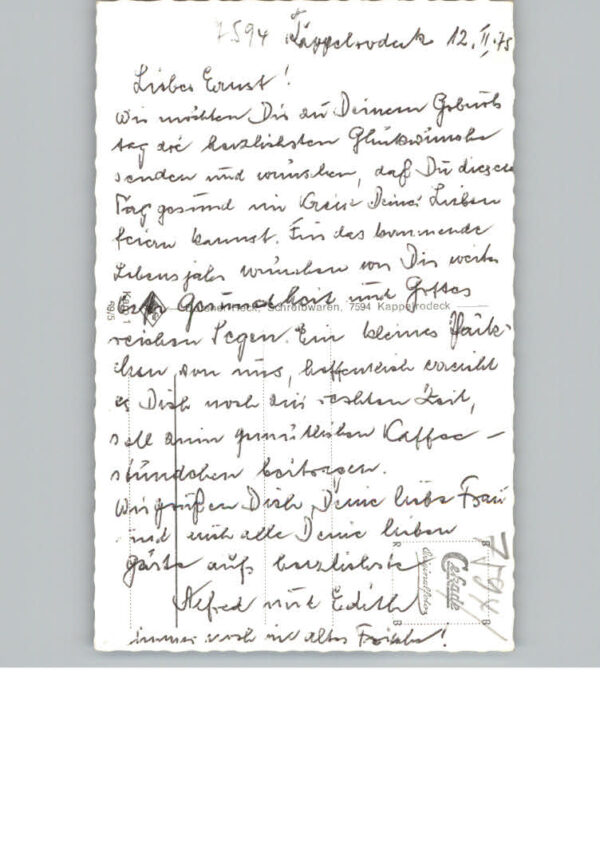 7594 Kappelrodeck 12. II. 75
Lieber Ernst!
Wir möchten Dir zu Deinem Geburts
tag die herzlichsten Glückwünsche
senden und wünschen, daß Du diesen
Tag gesund im Kreise Deiner Lieben
feiern kannst. Für das kommende
Lebensjahr wünschen wir Dir weiter
Gesundheit und Gottes
Schreibwaren, 7594 Kappelrodeck
reichen Segen. Ein kleines Päck-
chen von uns, hoffentlich erreicht
es Dich noch zur rechten Zeit,
soll zum gemütlichen Kaffee-
stündchen beitragen.
Wir grüßen Dich, Deine liebe Frau
und auch alle Deine lieben
Gäste aufs herzlichste
Alfred und Edith
immer noch in alter Frische!
Cekade
Originalfoto
7594